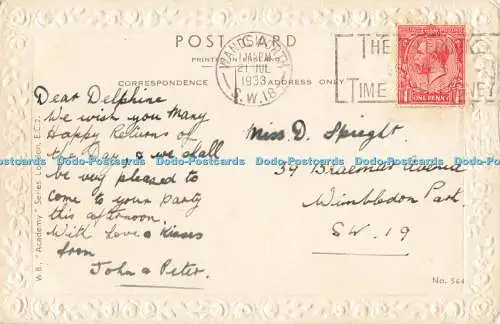 POST CARD
PRINTED IN
CORRESPONDENCE
ADDRESS ONLY
WANDSWORTH
21 JUL
1933
S.W.18
THE TELEPHONE
TIME MONEY
ONE PENNY
Dear Delphine
We wish you Many
Happy Returns of
the Day, & we shall
be very pleased to
come to your party
this afternoon.
With Love & Kisses
from
John & Peter.
Miss D. Speight.
34 Braemar Avenue
Wimbledon Park.
S.W. 19
W.B., "Academy" Series, London, E.C.2.
No. 564
Dodo-Postcards Dodo-Postcards Dodo-Postcards Dodo-Postcards Dodo-Postcards Dodo-Postcards